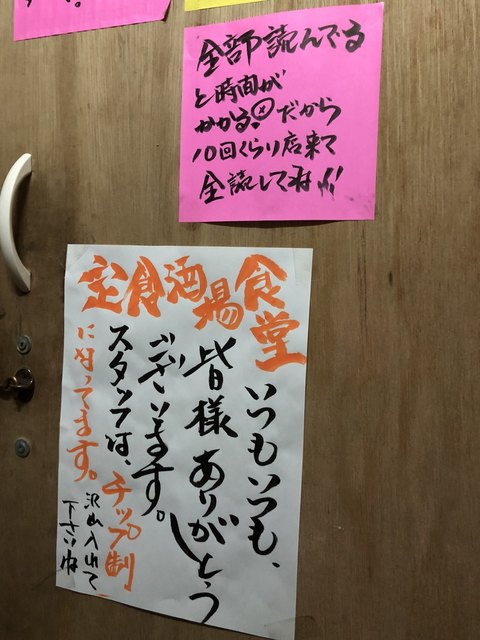 全部読んでる
と時間が
かかる。だから
10回くらい店来て
全読してネ!!
定食酒場食堂
いつもいつも、
皆様ありがとう
ございます。
スタッフは、チップ制
になってます。
沢山入れて
下さいね